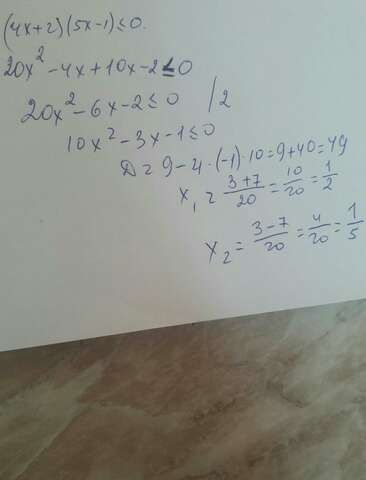 (4x+2)(5x-1)≤0.
20x²-4x+10x-2≤0
20x²-6x-2≤0 /2
10x²-3x-1≤0
D=9-4·(-1)·10=9+40=49
x₁=3+7/20=10/20=1/2
x₂=3-7/20=4/20=1/5